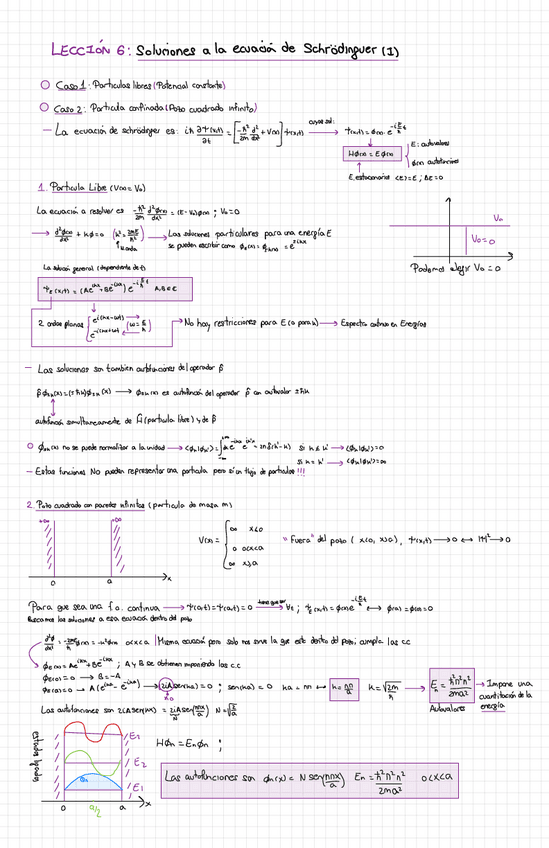 LECCIÓN 6: Soluciones a la ecuación de Schrödinguer (I)
Caso 1: Partículas libres (Potencial constante)
Caso 2: Partícula confinada (Pozo cuadrado infinito)
cuya sol:
— La ecuación de schrödinger es: iħ ∂Ψ(x,t)/∂t = [-ħ²/2m d²/dx² + V(x)] Ψ(x,t) → Ψ(x,t) = φ(x) · e^(-i E/ħ t)
Hφ(x) = Eφ(x) { E: autovalores
φ(x) autofunciones
E. estacionarios <E> = E ; ΔE = 0
1. Partícula Libre (V(x) = V₀)
La ecuación a resolver es -ħ²/2m d²φ(x)/dx² = (E - V₀)φ(x) ; V₀ = 0
→ d²φ(x)/dx² + kφ = 0 (k² = 2mE/ħ²) → Las soluciones particulares para una energía E
se pueden escribir como
V₀
V₀ = 0
Podemos elegir V₀ = 0
La solución general (dependiente de t)
Ψ_E(x,t) = (Ae^(ikx) + Be^(-ikx)) e^(-i E/ħ t) A,B ∈ ℂ
2 ondas planas { e^(i(kx-ωt)) → (ω = E/ħ)
e^(-i(kx+ωt)) ←
→ No hay restricciones para E (o para k) → Espectro continuo en Energías
— Las soluciones son tambien autofunciones del operador p̂
es autofunción del operador p̂ con autovalor ±ħk
autofunción simultaneamente de Ĥ (partícula libre) y de p̂
no se puede normalizar a la unidad
Si k ≠ k'
Si k = k'
— Estas funciones No pueden representar una partícula pero sí un flujo de partículas !!!
2. Pozo cuadrado con paredes infinitas (partícula de masa m)
+∞ +∞
0 a x
V(x) = { ∞ x≤0
0 0<x<a
∞ x≥a
"Fuera" del pozo ( x≤0, x≥a), Ψ(x,t) → 0 ↔ |Ψ|² → 0
Para que sea una f.o. continua → Ψ(0,t) = Ψ(a,t) = 0 → ∀t ; Ψ_E(x,t) = φ(x)e^(-i E/ħ t) ↔ φ(0) = φ(a) = 0
Buscamos las soluciones a esa ecuación dentro del pozo
0<x<a | Misma ecuación pero solo nos sirve la que este dentro del pozo y cumpla las c.c
φ_E(x) = Ae^(ikx) + Be^(-ikx) ; A y B se obtienen imponiendo las c.c
φ_E(0) = 0 → B = -A
φ_E(a) = 0 → A(e^(ika) - e^(-ika)) → 2iA sen(ka) = 0 ; sen(ka) = 0 ka = nπ ↔ k = nπ/a
E_n = ħ²π²n²/2ma² → Impone una
cuantización de la
energía
Autovalores
Las autofunciones son 2iA sen(kx) = 2iA sen(nπx/a) N = √(2/a)
Estados ligados
E₃
E₂
E₁
0 a/2 a x
Hφn = Enφn ;
Las autofunciones son φn(x) = N sen(nπx/a) En = ħ²π²n²/2ma² 0<x<a